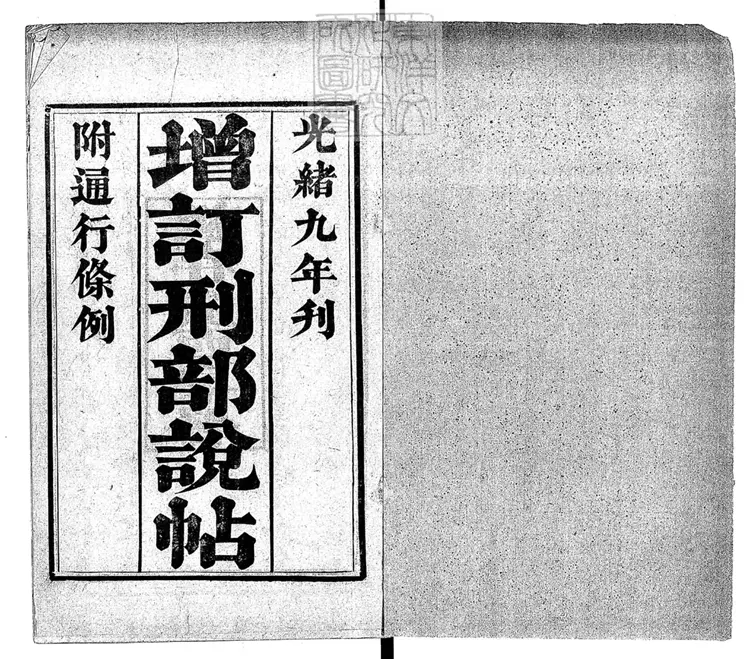 光緒九年刊
增訂刑部說帖
附通行條例